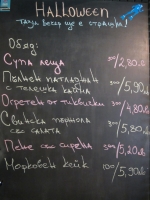 HALLOWEEN
- тази вечер ще е страшно!
Обяд:
Супа леща 300/2,80лв
Пълнен патладжан с телешка кайма 300/5,90лв
Огретен от тиквички 300/4,80лв
Свинска пържола със салата /5,80лв
Пиле със сирена 300/5,20лв
Морковен кейк 100/5,90лв